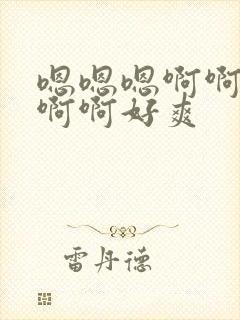 嗯嗯嗯啊啊
啊啊好爽
雷丹德